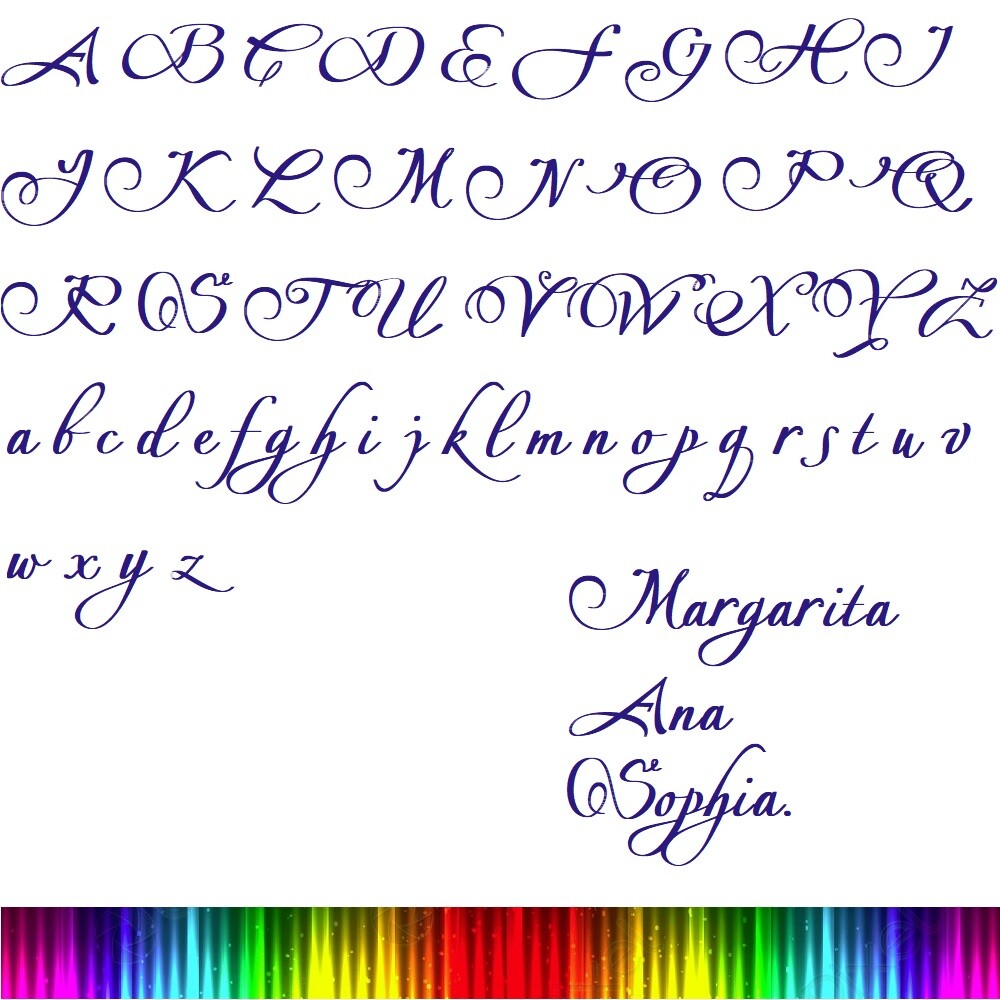 A B C D E F G H I
J K L M N O P Q
R S T U V W X Y Z
a b c d e f g h i j k l m n o p q r s t u v
w x y z
Margarita
Ana
Sophia.